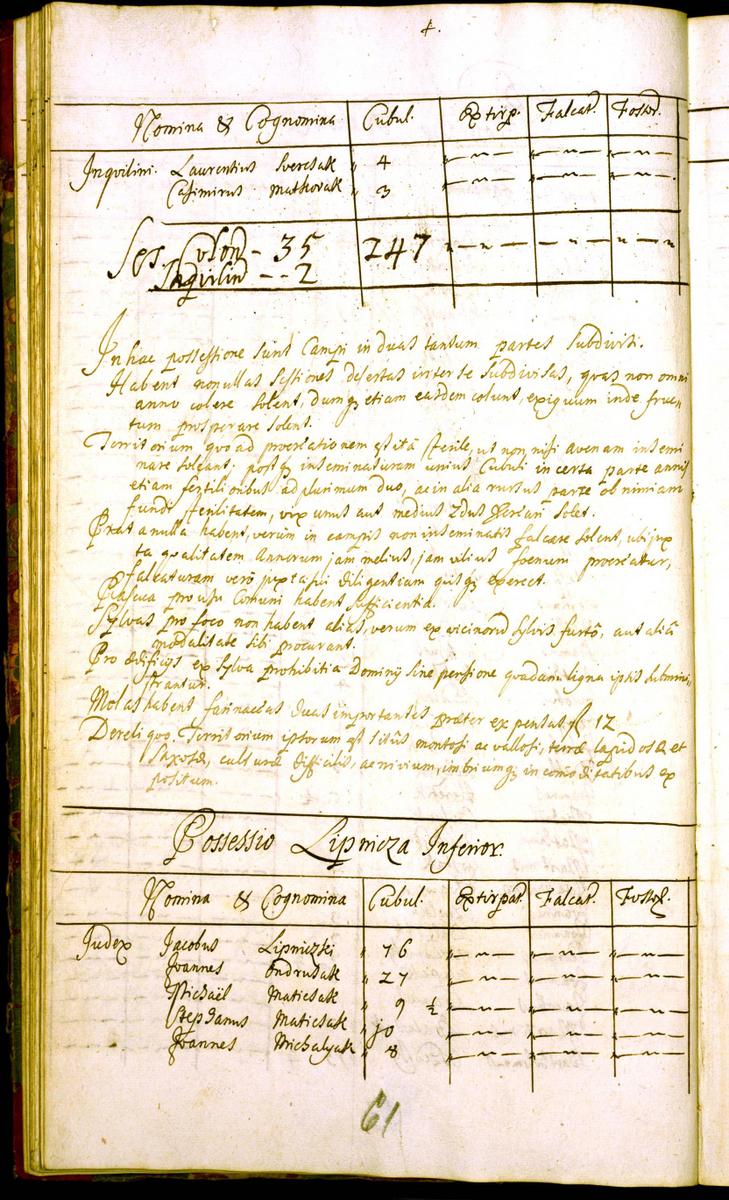 4.
Nomina & Cognomina Cubul. Extirp. Falcat. Fossor.
Inquilini. Laurentius Svercsak " 4 "—"— "—"— "—"—
Casimirus Matkovak " 3 "—"— "—"— "—"—
Ses. Colon – 35 247 "—"— "—"— "—"—
Inquilin – – 2
In hac possessione sunt Campi in duas tantum partes subdivisi.
Habent nonullas sessiones desertas inter se subdivisas, quas non omni
anno colere solent, dumq. etiam easdem colunt, exiguum inde fruc
tum prosperare solent.
Territorium quoad procreationem est ità sterile, ut non nisi avenam insemi
nare soleant; postq. inseminaturam unius Cubuli in certa parte annis
etiam fertilioribus ad plurimum duo, ac in alia rursus parte ob nimiam
fundi sterilitatem, vix unus aut medius solet.
Prata nulla habent, verùm in campis non inseminatis falcare solent, ubi jux
ta qualitatem Annorum jam melius, jam vilius foenum procreatur,
falcaturam verò juxta sui diligentiam quisq. exercet.
Pascua pro usu Comuni habent sufficientia.
Sylvas pro foco non habent alias, verum ex vicinorũ sylvis furtô, aut aliâ
modalitate sibi procurant.
Pro ædificijs ex sylva prohibitia Dominij sine pensione quadam ligna ipsis submini
strantur.
Molas habent farinaceas duas importantes præter expensas fl 12
De reliquo Territorium ipsorum est sitûs montosi ac vallosi, terræ lapidosæ et
saxosæ, culturæ difficilis, ac nivium, imbriumq. incomoditatibus ex
positum.
Possessio Lipnicza Inferior.
Nomina & Cognomina Cubul. Extirpat. Falcat. Fossor.
Judex Jacobus Lipniczki " 16 "—"— "—"— "—"—
Joannes Ondrusak " 27 "—"— "—"— "—"—
Michaël Maticsak " 9 ½ "—"— "—"— "—"—
Stephanus Maticsak " 10 "—"— "—"— "—"—
Joannes Michalyak " 8 "—"— "—"— "—"—
61